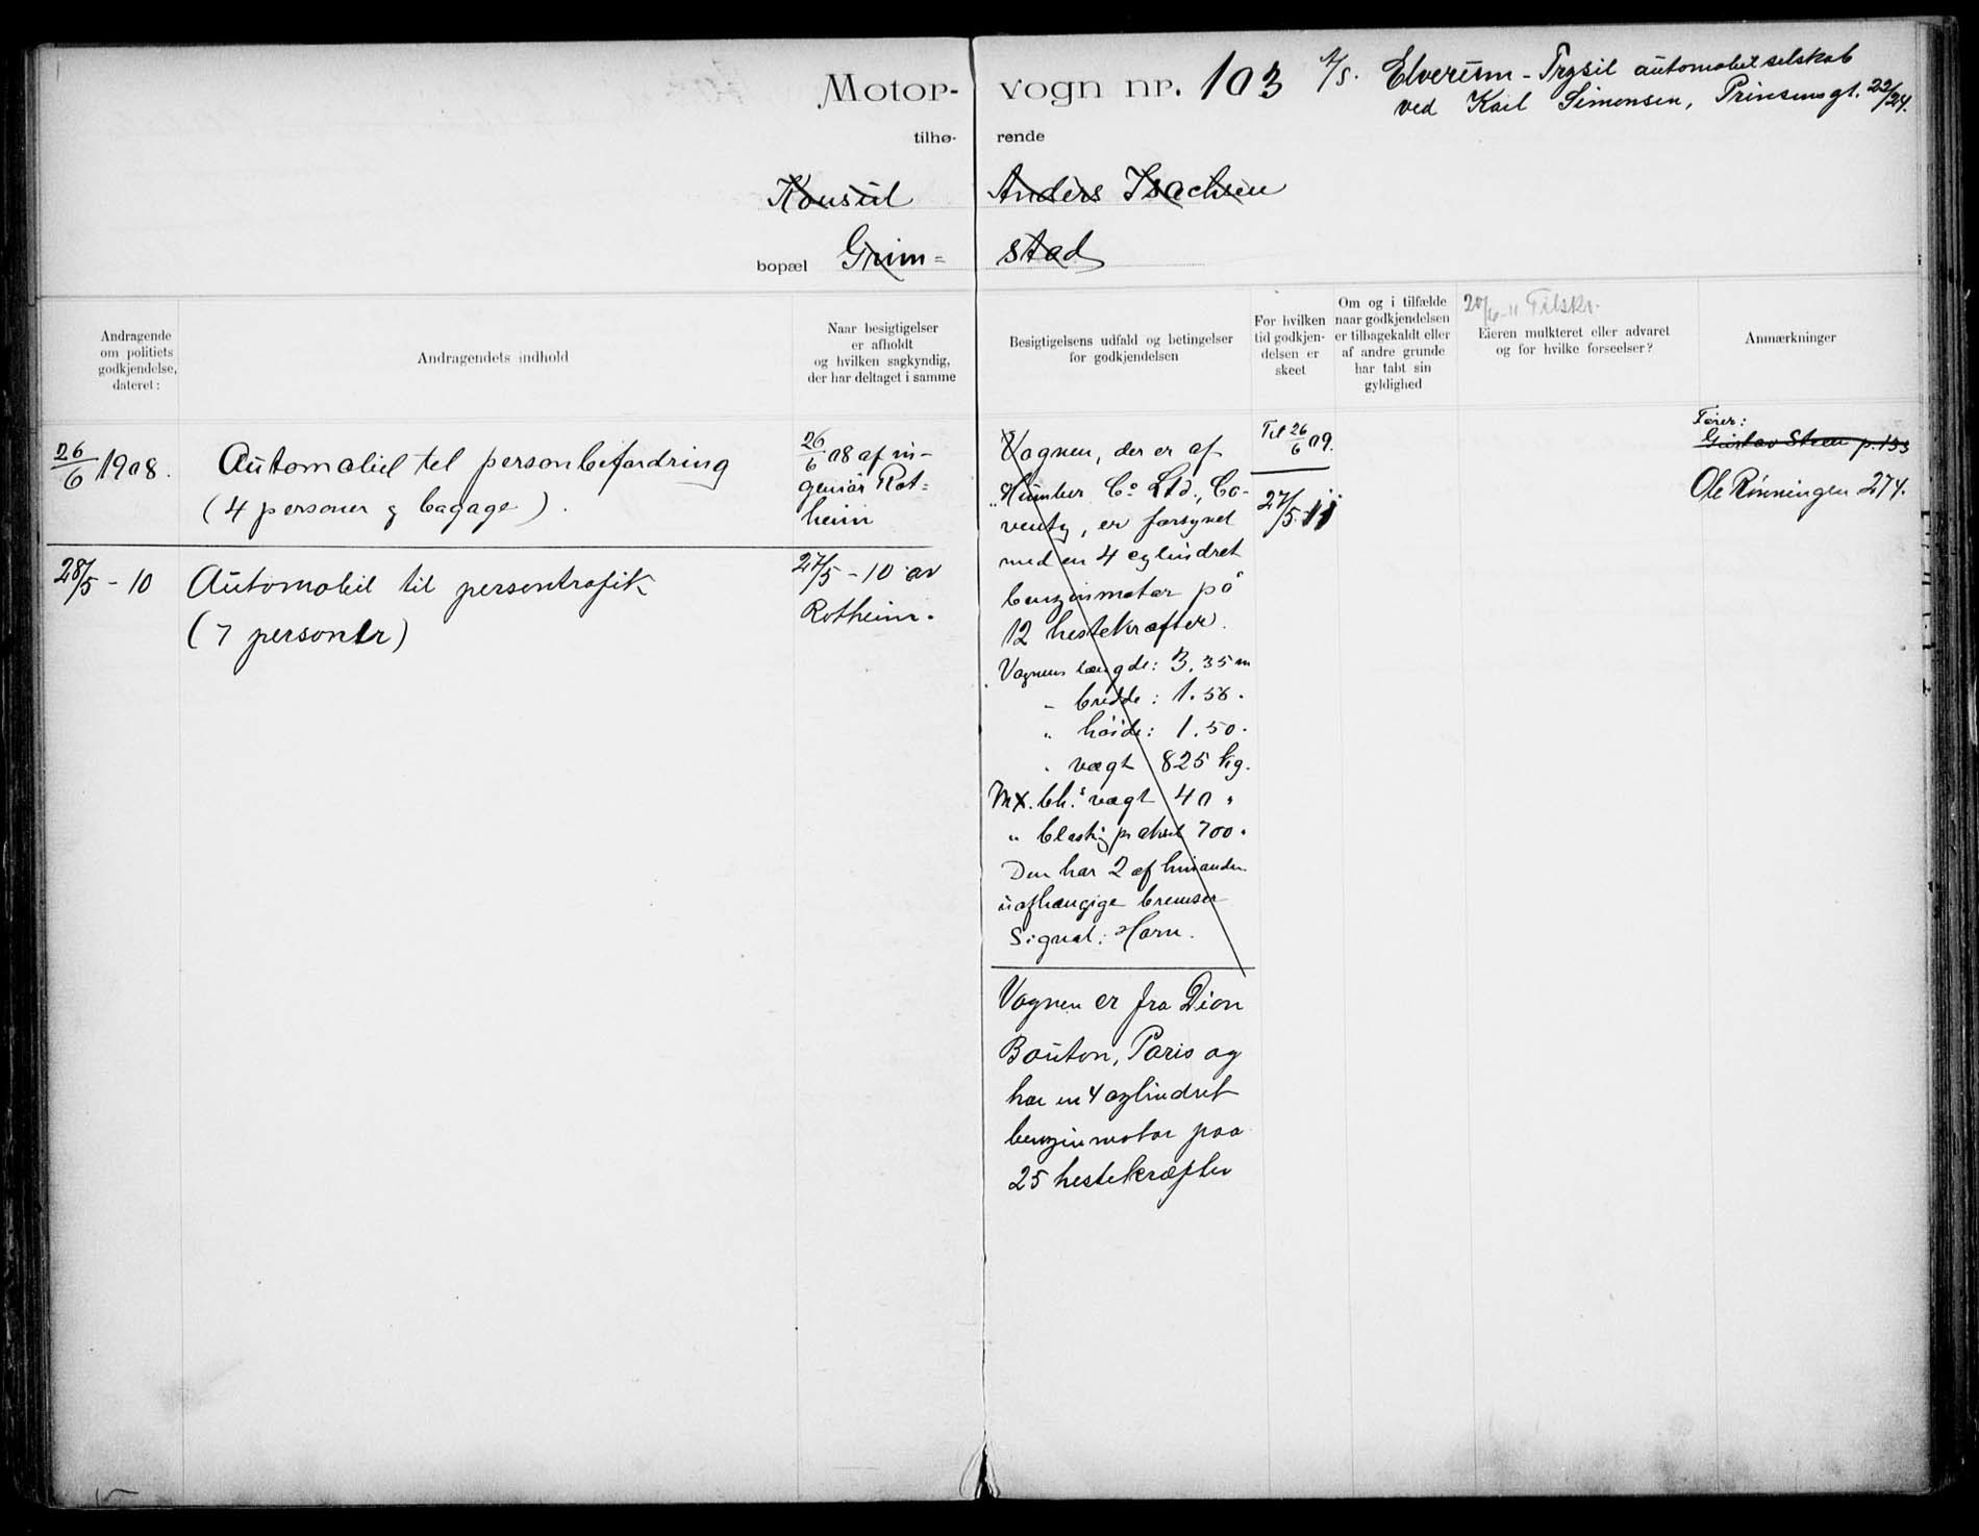 Motor- vogn nr. 103 A/S. Elverum - Trysil automobilselskab
ved Karl Simonsen, Prinsensgt. 22/24.
tilhø- rende
Konsul Anders Isachsen
bopæl Grim= stad
Andragende
om politiets
godkjendelse,
dateret:
Andragendets indhold
Naar besigtigelser
er afholdt
og hvilken sagkyndig,
der har deltaget i samme
Besigtigelsens udfald og betingelser
for godkjendelsen
For hvilken
tid godkjen-
delsen er
skeet
Om og i tilfælde
naar godkjendelsen
er tilbagekaldt eller
af andre grunde
har tabt sin
gyldighed
20/6-11 Tilskr.
Eieren mulkteret eller advaret
og for hvilke forseelser?
Anmærkninger
26/6 1908.
Automobil til personbefordring
(4 personer & bagage).
26/6 08 af in-
geniør Rot=
heim
Vognen, der er af
"Humber Co Ltd., Co-
ventry, er forsynet
med en 4 cylindret
benzinmotor på
12 hestekræfter.
Vognens længde: 3.35 m
" bredde: 1.56.
" høide: 1.50.
" vægt 825 kg.
Mx. bh.s vægt 40 "
" belastng pr aksel 700.
Den har 2 af hinanden
uafhængige bremser
Signal: Horn.
Til 26/6 09.
27/5-11
Fører:
Gustav Steen p. 133
Ole Rønningen 274.
28/5 - 10
Automobil til persontrafik
(7 personer)
27/5 - 10 av
Rotheim.
Vognen er fra Dion
Bouton, Paris og
har en 4 cylindret
benzinmotor paa
25 hestekræfter